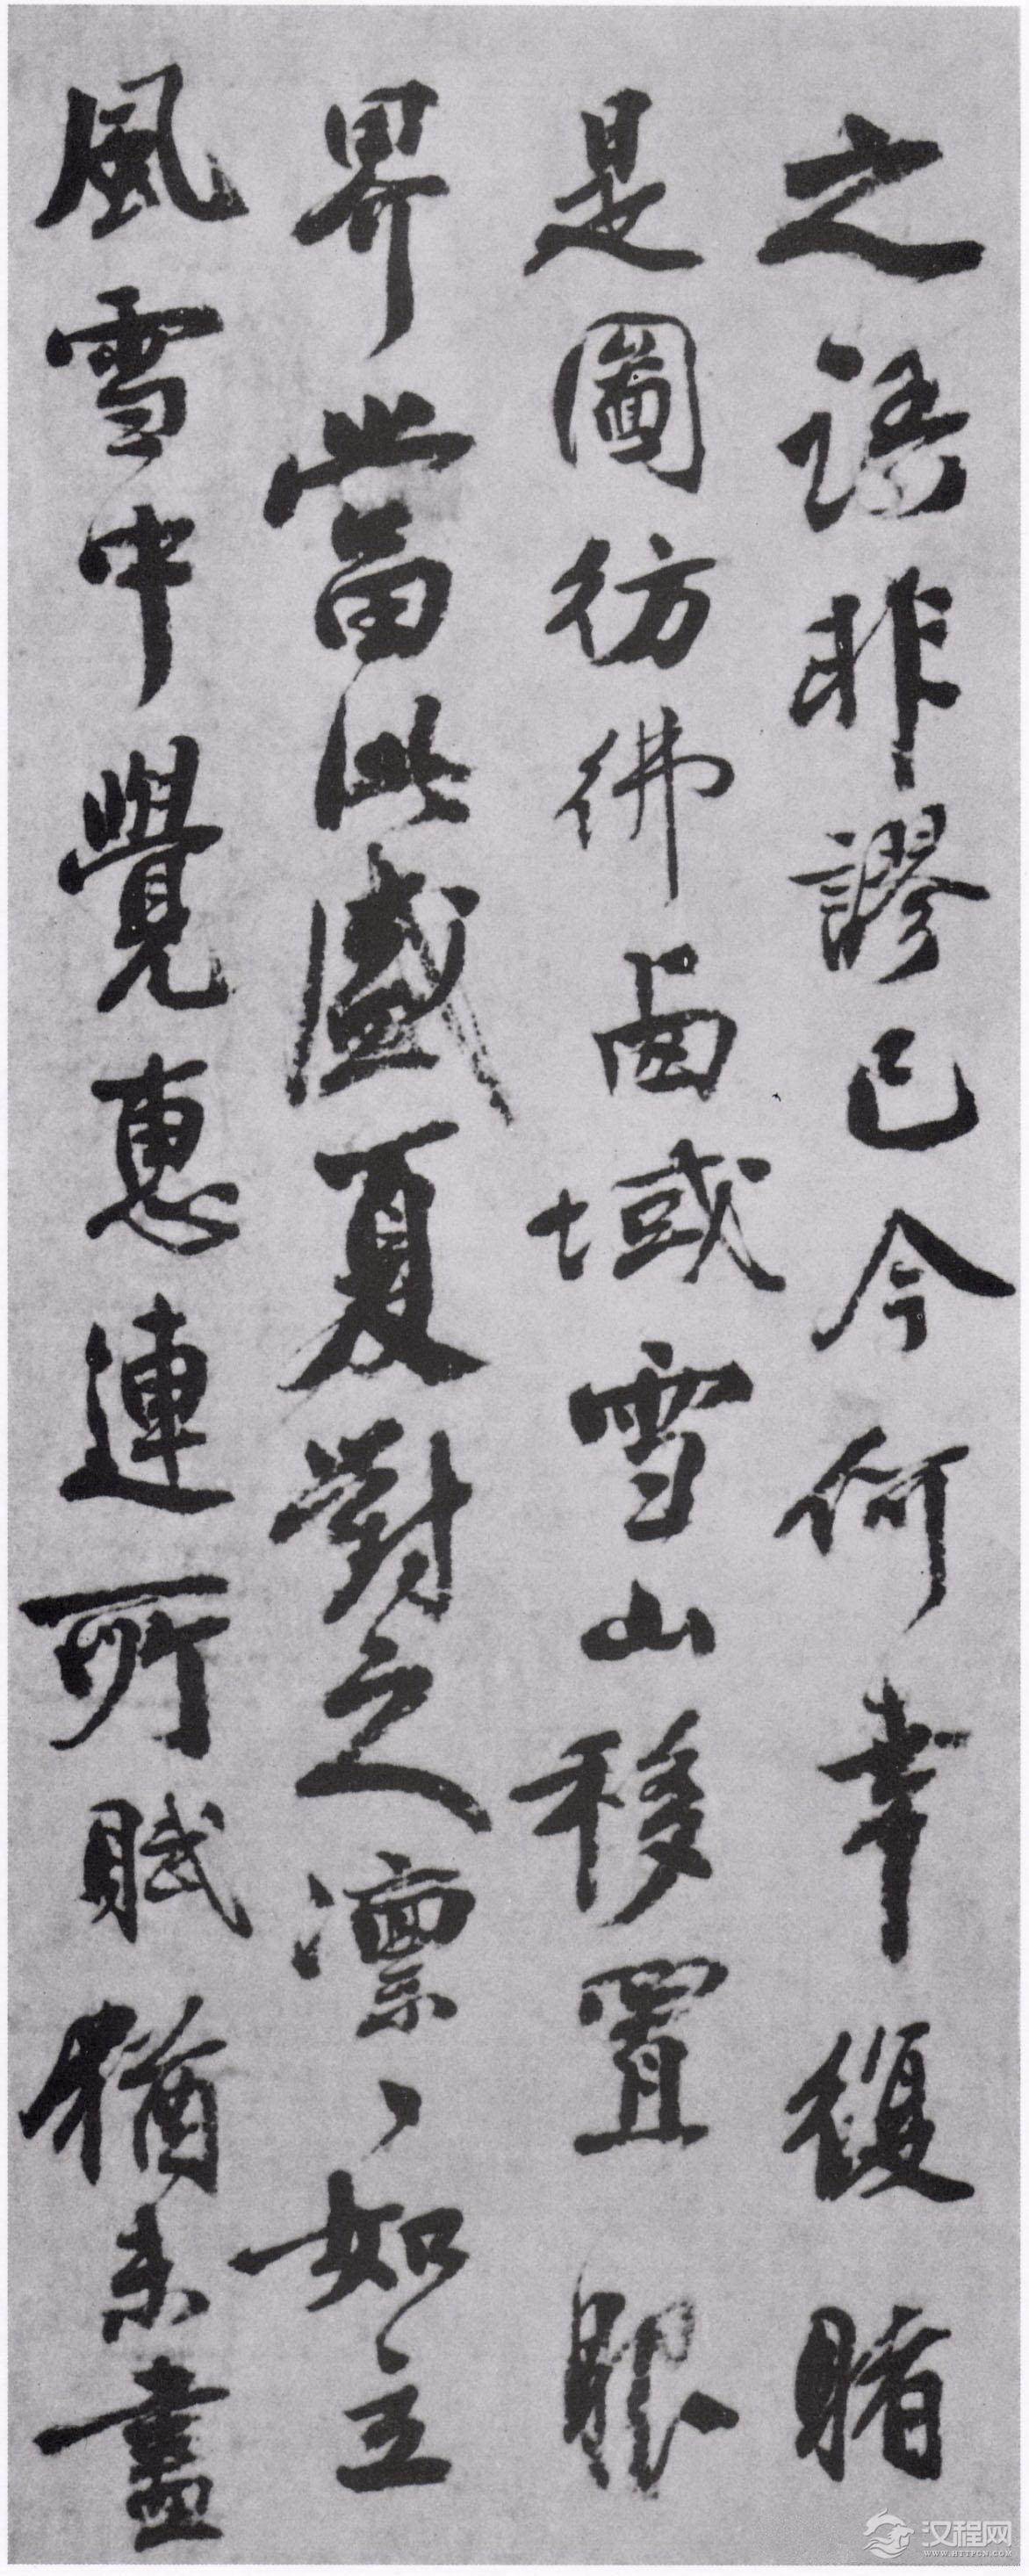 之語非謬已今何幸復睹
是圖彷彿西域雪山移置眼
界當此盛夏對之凛〻如立
風雪中覺惠連所賦猶未盡
汉程网
WWW.HTTPCN.COM